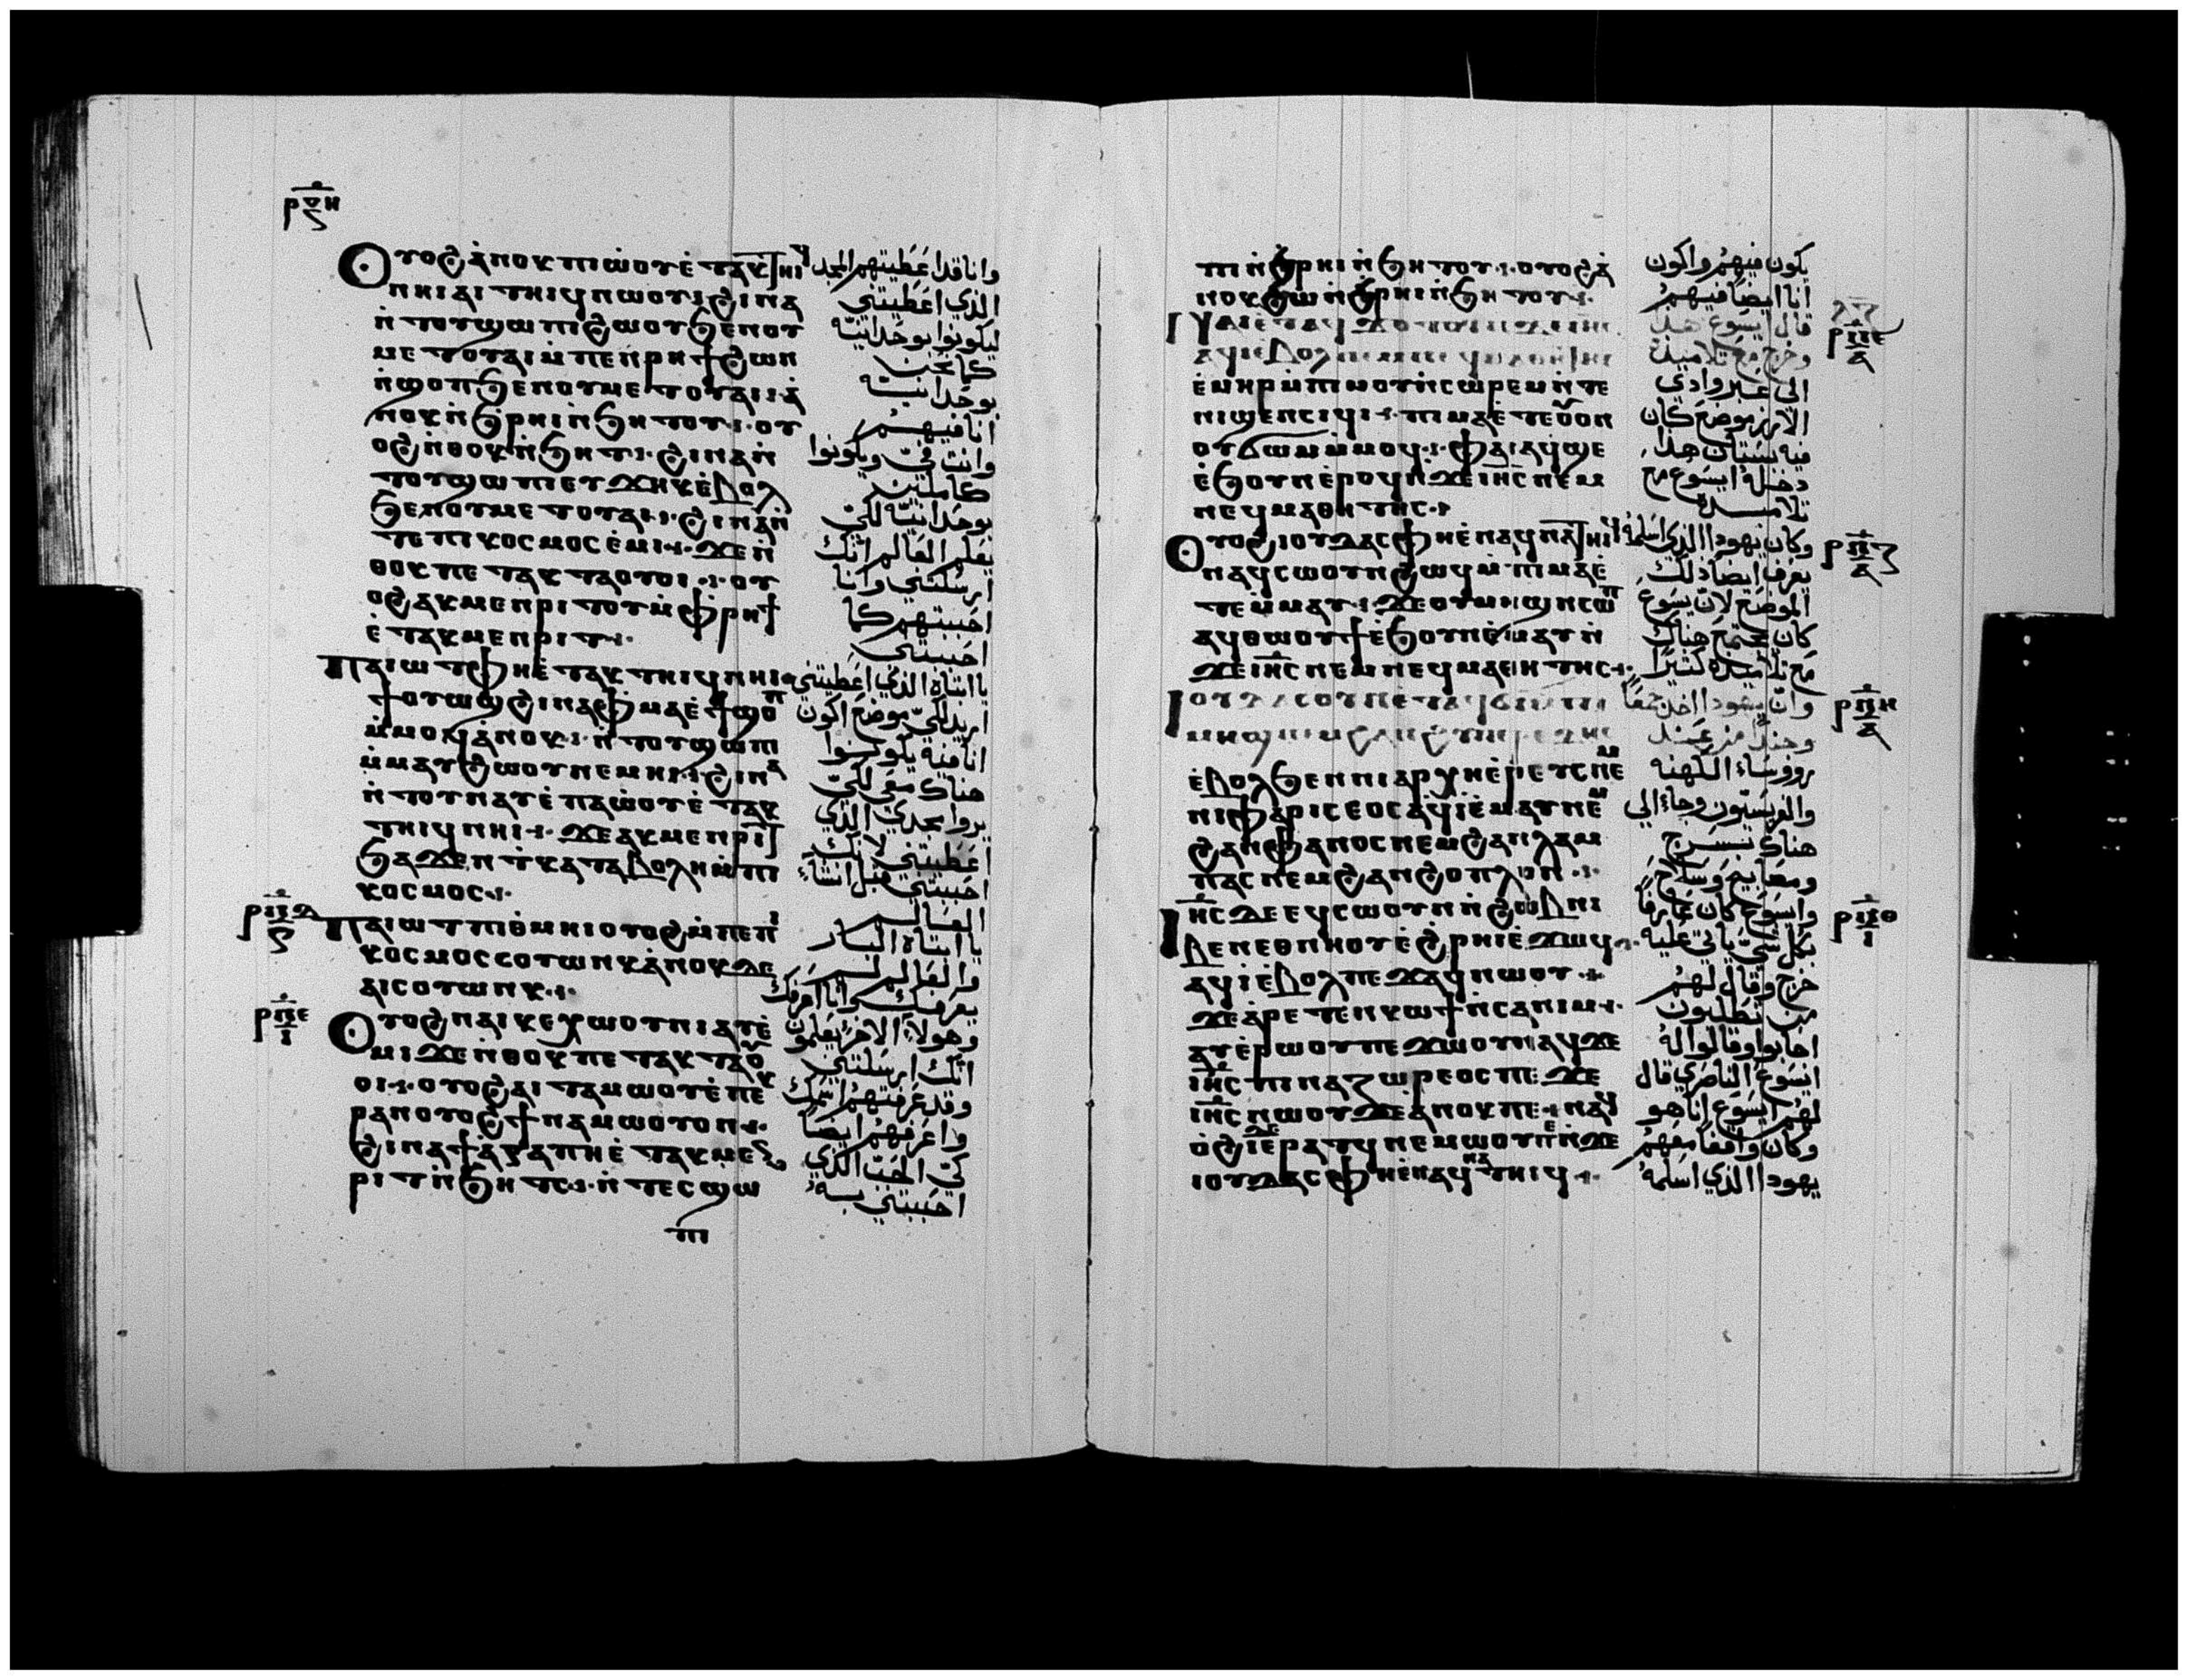 ⲣⲟⲏ
Ⲟⲩⲟϩ ⲁⲛⲟⲕ ⲡⲓⲱⲟⲩ ⲉⲧⲁⲕⲧⲏⲓϥ
ⲛⲏⲓ ⲁⲓⲧⲏⲓϥ ⲛⲱⲟⲩ ϩⲓⲛⲁ
ⲛⲧⲟⲩϣⲱⲡⲓ ϩⲱⲟⲩ ϧⲉⲛⲟⲩ
ⲙⲉⲧⲟⲩⲁⲓ ⲙⲡⲉⲛⲣⲏϯ ϩⲱⲛ
ⲛϣⲟⲡ ϧⲉⲛⲟⲩⲙⲉⲧⲟⲩⲁⲓ ⲁ
ⲛⲟⲕ ⲛϧⲣⲏⲓ ⲛϧⲏⲧⲟⲩ ⲟⲩ
ⲟϩ ⲛⲑⲟⲕ ⲛϧⲏⲧ ϩⲓⲛⲁ ⲛ
ⲧⲟⲩϣⲱⲡⲓ ⲉⲩϫⲏⲕ ⲉⲃⲟⲗ
ϧⲉⲛⲟⲩⲙⲉⲧⲟⲩⲁⲓ ϩⲓⲛⲁ ⲛ
ⲧⲉ ⲡⲓⲕⲟⲥⲙⲟⲥ ⲉⲙⲓ ϫⲉ ⲛ
ⲑⲟⲕ ⲡⲉⲧⲁⲕⲧⲁⲟⲩⲟⲓ ⲟⲩ
ⲟϩ ⲁⲕⲙⲉⲛⲣⲓⲧⲟⲩ ⲙⲫⲣⲏϯ
ⲉⲧⲁⲕⲙⲉⲛⲣⲓⲧ
Ⲡⲁⲓⲱⲧ ⲫⲏ ⲉⲧⲁⲕⲧⲏⲓϥ ⲛⲏⲓ
ϯⲟⲩⲱϣ ϩⲓⲛⲁ ⲫⲙⲁ ⲉϯϣⲟⲡ
ⲙⲙⲟϥ ⲁⲛⲟⲕ ⲛⲧⲟⲩϣⲱⲡⲓ
ⲙⲙⲁⲩ ϩⲱⲟⲩ ⲛⲉⲙⲏⲓ ϩⲓⲛⲁ
ⲛⲧⲟⲩⲛⲁⲩ ⲉⲡⲁⲱⲟⲩ ⲉⲧⲁⲕ
ⲧⲏⲓϥ ⲛⲏⲓ ϫⲉ ⲁⲕⲙⲉⲛⲣⲓⲧ
ϧⲁϫⲉⲛ ⲧⲕⲁⲧⲁⲃⲟⲗⲏ ⲙⲡⲓ
ⲕⲟⲥⲙⲟⲥ
Ⲡⲁⲓⲱⲧ ⲡⲓⲑⲙⲏⲓ ⲟⲩⲟϩ ⲙⲡⲉ ⲡⲓ
ⲕⲟⲥⲙⲟⲥ ⲥⲟⲩⲱⲛⲕ ⲁⲛⲟⲕ ⲇⲉ
ⲁⲓⲥⲟⲩⲱⲛⲕ
Ⲟⲩⲟϩ ⲛⲁⲓⲕⲉⲭⲱⲟⲩⲛⲓ ⲁⲩⲉ
ⲙⲓ ϫⲉ ⲛⲑⲟⲕ ⲡⲉⲧⲁⲕⲧⲁⲟⲩ
ⲟⲓ ⲟⲩⲟϩ ⲁⲓⲧⲁⲙⲱⲟⲩ ⲉⲡⲉⲕ
ⲣⲁⲛ ⲟⲩⲟϩ ϯⲛⲁⲧⲁⲙⲱⲟⲩ ⲟⲛ
ϩⲓⲛⲁ ϯⲁⲅⲁⲡⲏ ⲉⲧⲁⲕⲙⲉⲛ
ⲣⲓⲧ ⲛϧⲏⲧⲥ ⲛⲧⲉⲥϣⲱ
ⲡⲓ
وانا قد اعطيتهم المجد
الذي اعطيتني
ليكونوا بوحدانيه
كما نحن
بوحدانيه
انا فيهم
وانت فيّ ويكونوا
كاملين
بوحدانيه لكي
يعلم العالم انك
ارسلتني وانا
احببتهم كما
احببتني
يا ابتاه الذي اعطيتني
اريد لكي موضع اكون
انا فيه يكونوا
هناك معي لكي
يروا مجدي الذي
اعطيتني لانك
احببتني قبل انشاء
العالم
يا ابتاه البار
والعالم لم
يعرفك وانا اعرفك
وهولاء الاخر يعلمون
انك ارسلتني
وقد عرفتهم اسمك
واعرفهم ايضا
كي الحب الذي
احببتني به
ⲡⲓ ⲛϧⲣⲏⲓ ⲛϧⲏⲧⲟⲩ ⲟⲩⲟϩ ⲁ
ⲛⲟⲕ ϩⲱ ⲛϧⲣⲏⲓ ⲛϧⲏⲧⲟⲩ
ⲁϥⲓ ⲉⲃⲟⲗ
ⲉⲙⲏⲣ ⲙⲡⲓⲙⲟⲩⲛⲥⲱⲣⲉⲙ ⲛⲧⲉ
ⲛⲓϣⲉⲛⲥⲓϥⲓ ⲡⲓⲙⲁ ⲉⲧⲉ ⲟⲩⲟⲛ
ⲟⲩϭⲱⲙ ⲙⲙⲟϥ ⲫⲁⲓ ⲁϥϣⲉ
ⲉϧⲟⲩⲛ ⲉⲣⲟϥ ⲛϫⲉ ⲓⲏⲥ ⲛⲉⲙ
ⲛⲉϥⲙⲁⲑⲏⲧⲏⲥ
Ⲟⲩⲟϩ ⲓⲟⲩⲇⲁⲥ ⲫⲏ ⲉⲛⲁϥⲛⲁⲧⲏⲓϥ
ⲛⲁϥⲥⲱⲟⲩⲛ ϩⲱϥ ⲙⲡⲓⲙⲁ ⲉ
ⲧⲉⲙⲙⲁⲩ ϫⲉ ⲟⲩⲙⲏϣ ⲛⲥⲟⲡ
ⲁϥⲑⲱⲟⲩϯ ⲉϧⲟⲩⲛ ⲉⲙⲁⲩ ⲛ
ϫⲉ ⲓⲏⲥ ⲛⲉⲙ ⲛⲉϥⲙⲁⲑⲏⲧⲏⲥ
Ⲓⲟⲩⲇⲁⲥ ⲟⲩⲛ ⲉⲧⲁϥϭⲓ
ⲉⲃⲟⲗ ϧⲉⲛ ⲛⲓⲁⲣⲭⲏⲉⲣⲉⲩⲥ ⲛⲉⲙ
ⲛⲓⲫⲁⲣⲓⲥⲉⲟⲥ ⲁϥⲓ ⲉⲙⲁⲩ ⲛⲉⲙ
ϩⲁⲛⲫⲁⲛⲟⲥ ⲛⲉⲙ ϩⲁⲛⲗⲁⲙ
ⲡⲁⲥ ⲛⲉⲙ ϩⲁⲛϩⲟⲡⲗⲟⲛ
Ⲓⲏⲥ ⲇⲉ ⲉϥⲥⲱⲟⲩⲛ ⲛϩⲱⲃ ⲛⲓ
ⲃⲉⲛ ⲉⲑⲛⲏⲟⲩ ⲉϩⲣⲏⲓ ⲉϫⲱϥ
ⲁϥⲓ ⲉⲃⲟⲗ ⲡⲉϫⲁϥ ⲛⲱⲟⲩ
ϫⲉ ⲁⲣⲉⲧⲉⲛⲕⲱϯ ⲛⲥⲁ ⲛⲓⲙ
ⲁⲩⲉⲣⲱⲟⲩ ⲡⲉϫⲱⲟⲩ ⲛⲁϥ ϫⲉ
ⲓⲏⲥ ⲡⲓⲛⲁⲍⲱⲣⲉⲟⲥ ⲡⲉϫⲉ
ⲓⲏⲥ ⲛⲱⲟⲩ ϫⲉ ⲁⲛⲟⲕ ⲡⲉ ⲛⲁϥ
ⲟϩⲓ ⲇⲉ ⲉⲣⲁⲧϥ ⲛⲉⲙⲱⲟⲩ ⲡⲉ ⲛϫⲉ
ⲓⲟⲩⲇⲁⲥ ⲫⲏ ⲉⲛⲁϥⲛⲁⲧⲏⲓϥ
يكون فيهم واكون
انا ايضا فيهم
قال ايسوع هذا
وخرج مع تلاميذه
الى عبر وادي
الارز بموضع كان
فيه بستان هذا
دخله ايسوع مع
تلاميذه
وكان يهودا الذي اسلمه
يعرف ايضا ذلك
الموضع لان يسوع
كان يجتمع هناك
مع تلاميذه كثيرا
وان يهودا اخذ جمعا
وجندا من عند
رووساء الكهنه
والفريسيون وجاء الى
هناك بسرج
ومصابيح وسلاح
وايسوع كان عارفا
بكل شي ياتي عليه
خرج وقال لهم
من تطلبون
اجابوا وقالوا له
ايسوع الناصري قال
لهم ايسوع انا هو
وكان واقفا معهم
يهودا الذي اسلمه